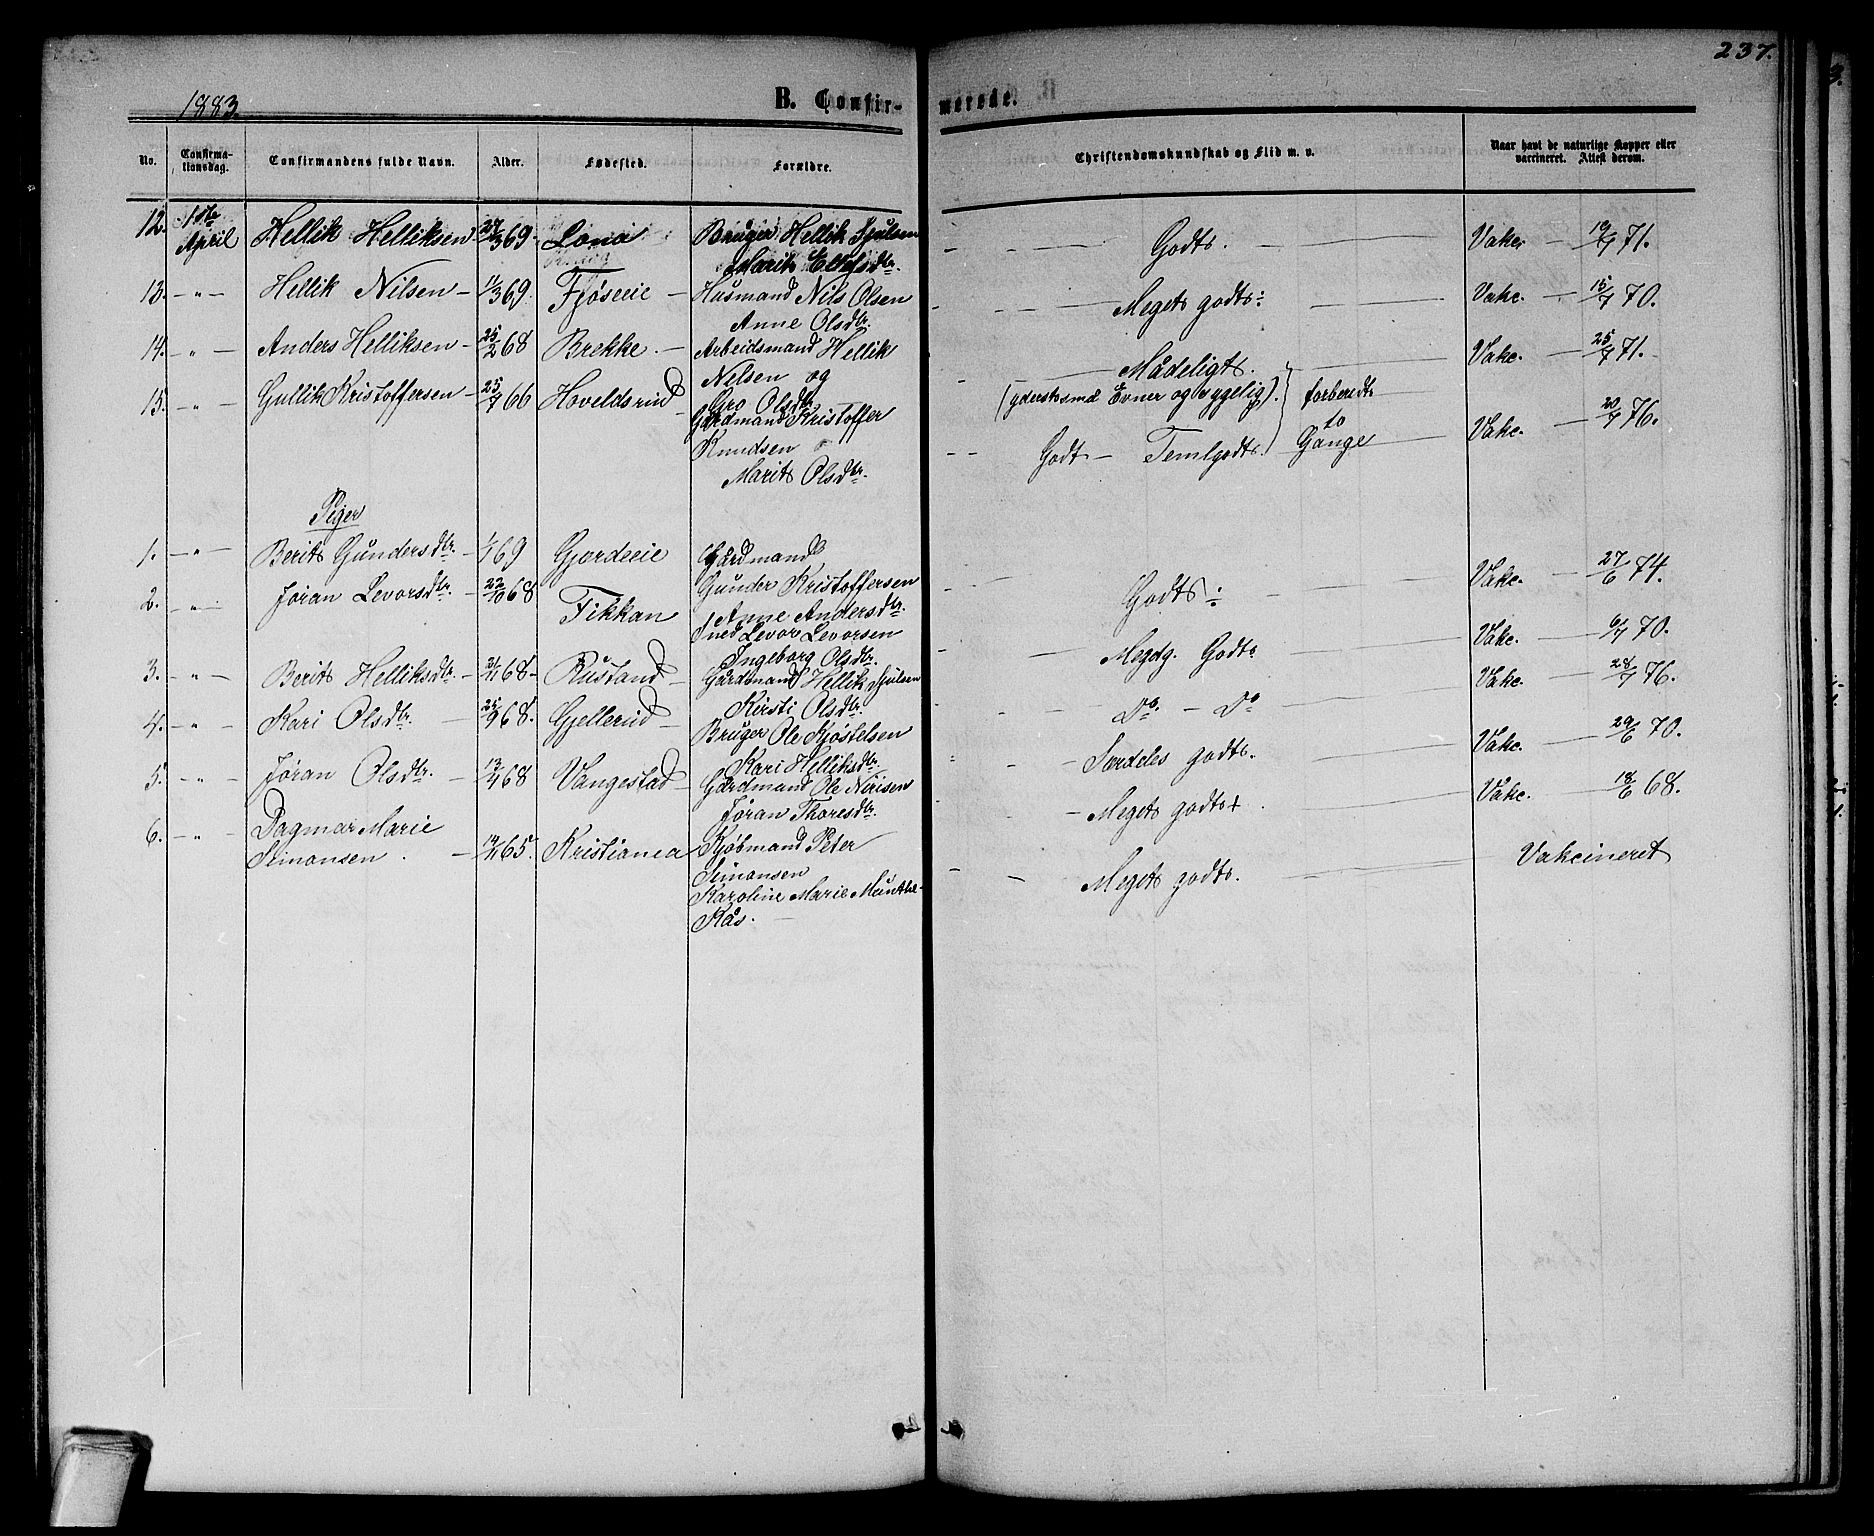 237.
1883.
B. Confir-
merede.
No.
Confirma-
tionsdag.
Confirmandens fulde Navn.
Alder.
Fødested.
Forældre.
Christendomskundskab og Flid m. v.
Naar havt de naturlige Kopper eller
vaccineret. Attest derom.
12. 1ste April Hellik Helliksen 27/3 69. Bruger Hellik Juulsen
Marit
Godt. Vakc. — 19/7 71.
13. — " — Hellik Nilsen — 11/3 69. Fjøseeie — Husmand Nils Olsen
Anne Olsdtr.
Meget godt: Vakc. — 15/7 70.
14. — " — Anders Helliksen — 25/2 68 Brekke. — Arbeidsmand Hellik
Nilsen og
Gro Olsdtr.
Mådeligt. Vakc. — 25/7 71.
(yderst små Evner og sygelig). forberedt
to
Gange
15. — " — Gullik Kristoffersen — 25/7 66 Hoveldsrud — Gårdmand Kristoffer
Knudsen
Marit Olsdtr.
Godt — Temlgodt. Vakc. — 20/7 76.
Piger
1. — " — Berit Gundersdtr. — 1/1 69 Gjordeeie Gårdmand
Gunder Kristoffersen
Anne Andersdtr.
Godt: Vakc. — 27/6 74.
2. — " — Jøran Levorsdtr. — 22/10 68 Fikkan Levor Levorsen
Ingeborg Olsdtr.
Megdg. Godt Vakc. — 6/7 70.
3. — " — Berit Helliksdtr. — 21/11 68 — Rustand — Gårdmand Hellik Juulsen
Kirsti Olsdtr.
Do. — Do Vakc. — 28/7 76.
4. — " — Kari Olsdtr. — 25/9 68. Gjellerud — Bruger Ole Kjøstelsen
Kari Helliksdtr.
Særdeles godt. Vakc. — 29/6 70.
5. — " — Jøran Olsdtr. — 13/4 68 Vangestad — Gårdmand Ole Nirisen
Jøran Thoresdtr.
Meget godt + Vakc. — 18/6 68.
6. — " — Dagmar Marie
Simonsen. — 14/11 65. Kristiania Kjøbmand Peter
Simonsen
Karoline Marie Munthe-
Kås. —
Meget godt. Vakcineret